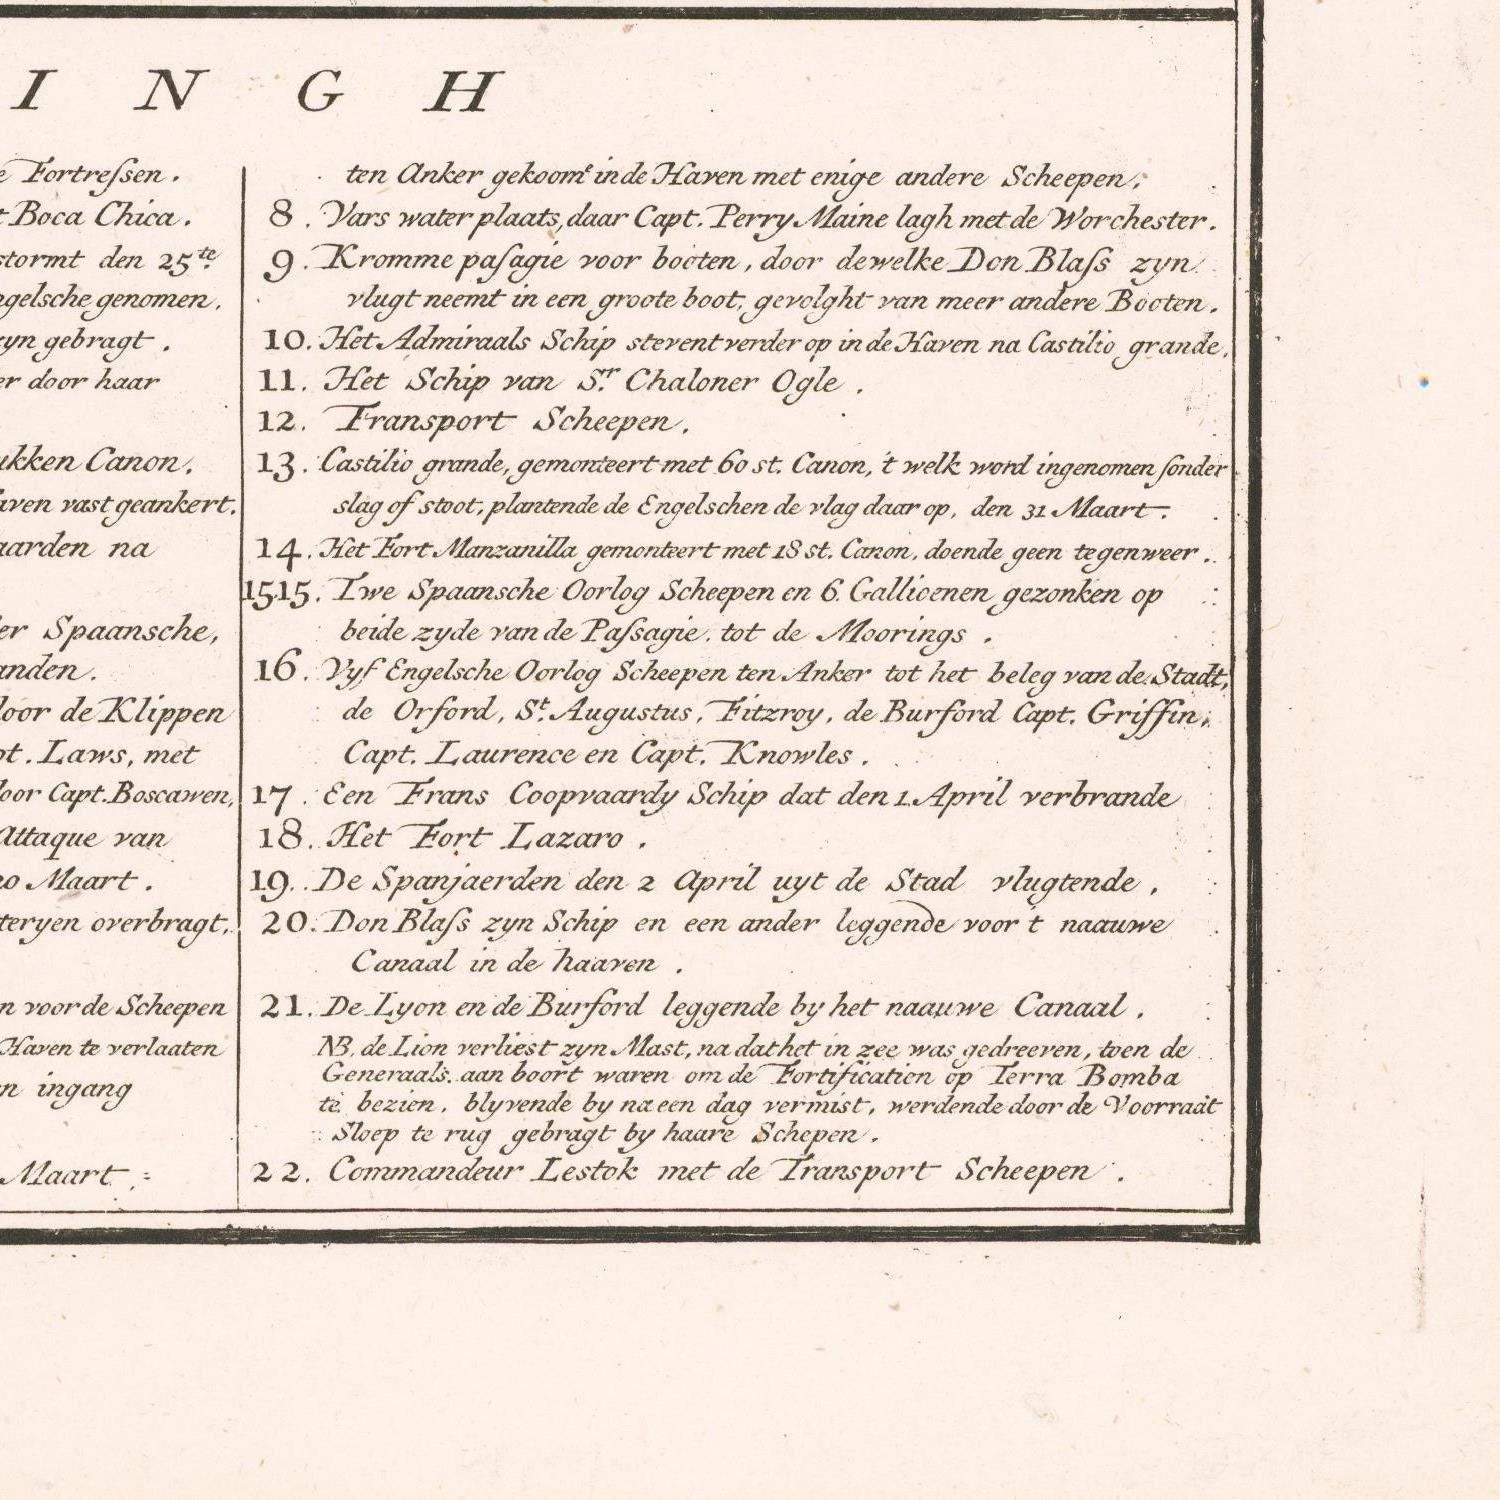 I N G H
e Fortreſsen.
t Boca Chica.
stormt den 25te
ngelsche genomen.
zyn gebragt.
er door haar
ukken Canon.
aven vast geankert.
aarden na
er Spaansche,
anden.
door de Klippen
pt. Laws, met
door Capt. Boscawen,
Attaque van
20 Maart.
teryen overbragt,
n voor de Scheepen
Haven te verlaaten
n ingang
Maart.
ten Anker gekoomt in de Haven met enige andere Scheepen.
8. Vars water plaats, daar Capt. Perry Maine lagh met de Worchester.
9. Kromme paſagie voor booten, door dewelke Don Blaſs zyn
vlugt neemt in een groote boot, gevolght van meer andere Booten.
10. Het Admiraals Schip stevent verder op in de Haven na Castilio grande.
11. Het Schip van Sr. Chaloner Ogle.
12. Transport Scheepen.
13. Castilio grande, gemonteert met 60 st. Canon, 't welk word ingenomen ſonder
slag of stoot, plantende de Engelschen de vlag daar op, den 31 Maart.
14. Het Fort Manzanilla gemonteert met 18 st. Canon, doende geen tegenweer.
15.15. Twe Spaansche Oorlog Scheepen en 6. Gallioenen gezonken op
beide zyde van de Paſsagie. tot de Moorings.
16. Vyf Engelsche Oorlog Scheepen ten Anker tot het beleg van de Stadt,
de Orford, St. Augustus, Fitzroy, de Burford Capt. Griffin,
Capt. Laurence en Capt. Knowles.
17. Een Frans Coopvaardy Schip dat den 1. April verbrande
18. Het Fort Lazaro.
19. De Spanjaerden den 2 April uyt de Stad vlugtende.
20. Don Blaſs zyn Schip en een ander leggende voor 't naauwe
Canaal in de haaven.
21. De Lyon en de Burford leggende by het naauwe Canaal.
NB, de Lion verliest zyn Mast, na dat het in zee was gedreeven, toen de
Generaals aan boort waren om de Fortification op Terra Bomba
te bezien, blyvende by na een dag vermist, werdende door de Voorraat
Sloep te rug gebragt by haare Schepen.
22. Commandeur Lestok met de Transport Scheepen.